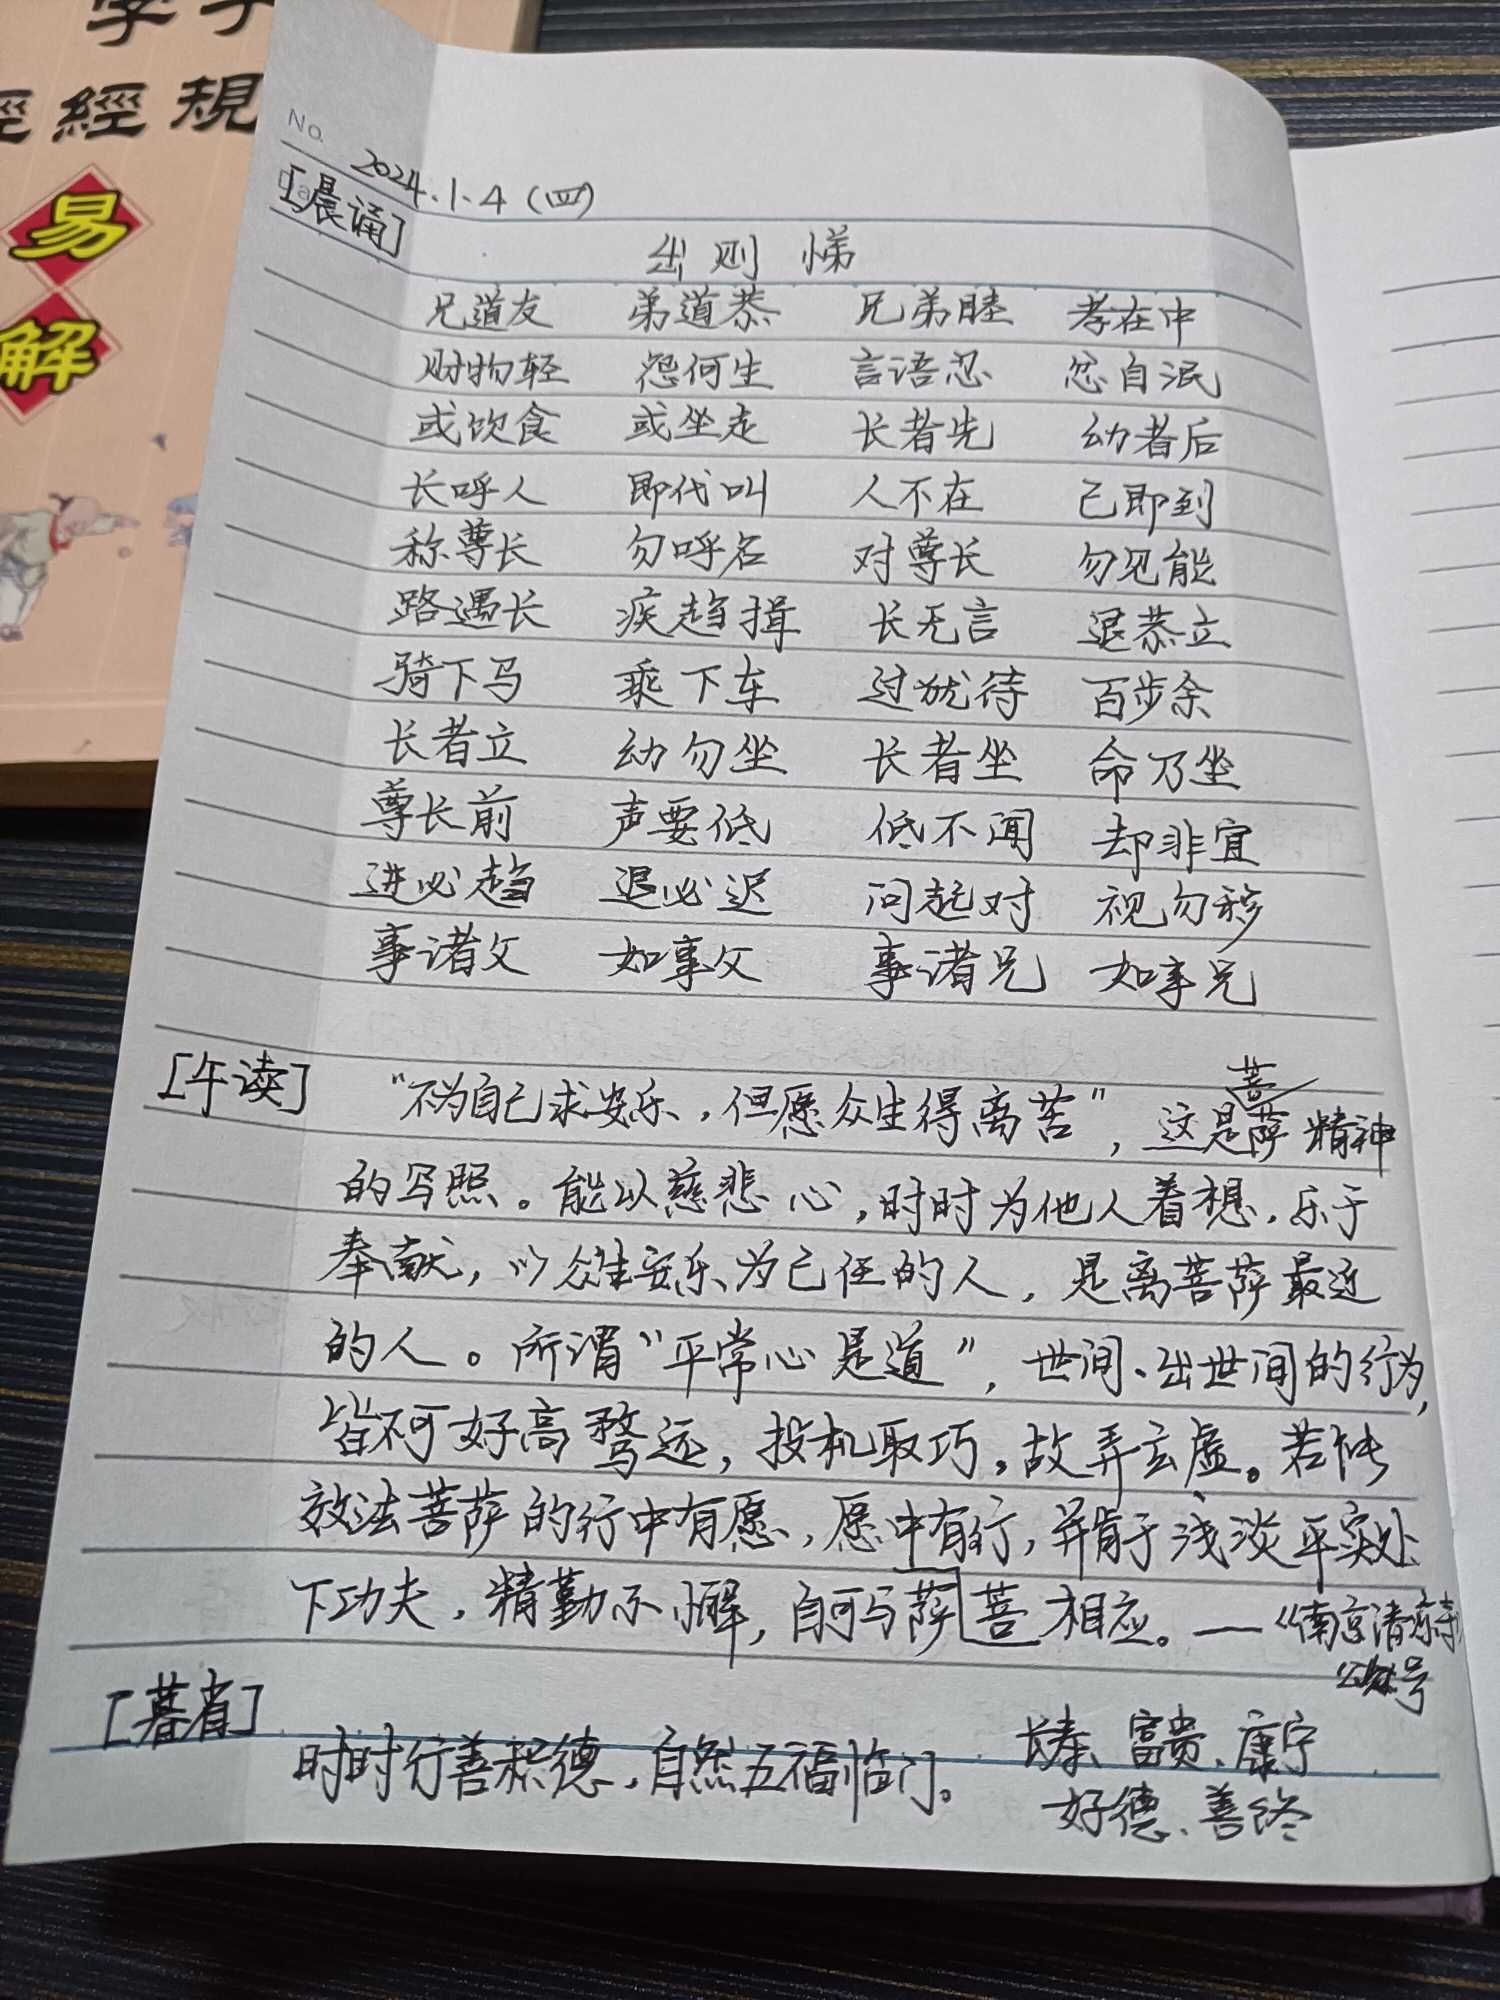 經經規
易
解
No.
2024.1.4(四)
[晨诵]
出则悌
兄道友 弟道恭 兄弟睦 孝在中
财物轻 怨何生 言语忍 忿自泯
或饮食 或坐走 长者先 幼者后
长呼人 即代叫 人不在 己即到
称尊长 勿呼名 对尊长 勿见能
路遇长 疾趋揖 长无言 退恭立
骑下马 乘下车 过犹待 百步余
长者立 幼勿坐 长者坐 命乃坐
尊长前 声要低 低不闻 却非宜
进必趋 退必迟 问起对 视勿移
事诸父 如事父 事诸兄 如事兄
[午读]
“不为自己求安乐,但愿众生得离苦”,这是菩萨精神
的写照。能以慈悲心,时时为他人着想,乐于
奉献,以众生安乐为己任的人,是离菩萨最近
的人。所谓“平常心是道”,世间、出世间的行为,
皆不可好高骛远,投机取巧,故弄玄虚。若能
效法菩萨的行中有愿,愿中有行,并肯于浅淡平实处
下功夫,精勤不懈,自可与萨菩相应。——《南京清凉寺》
公众号
[暮省]
时时行善积德,自然五福临门。
长寿、富贵、康宁
好德、善终